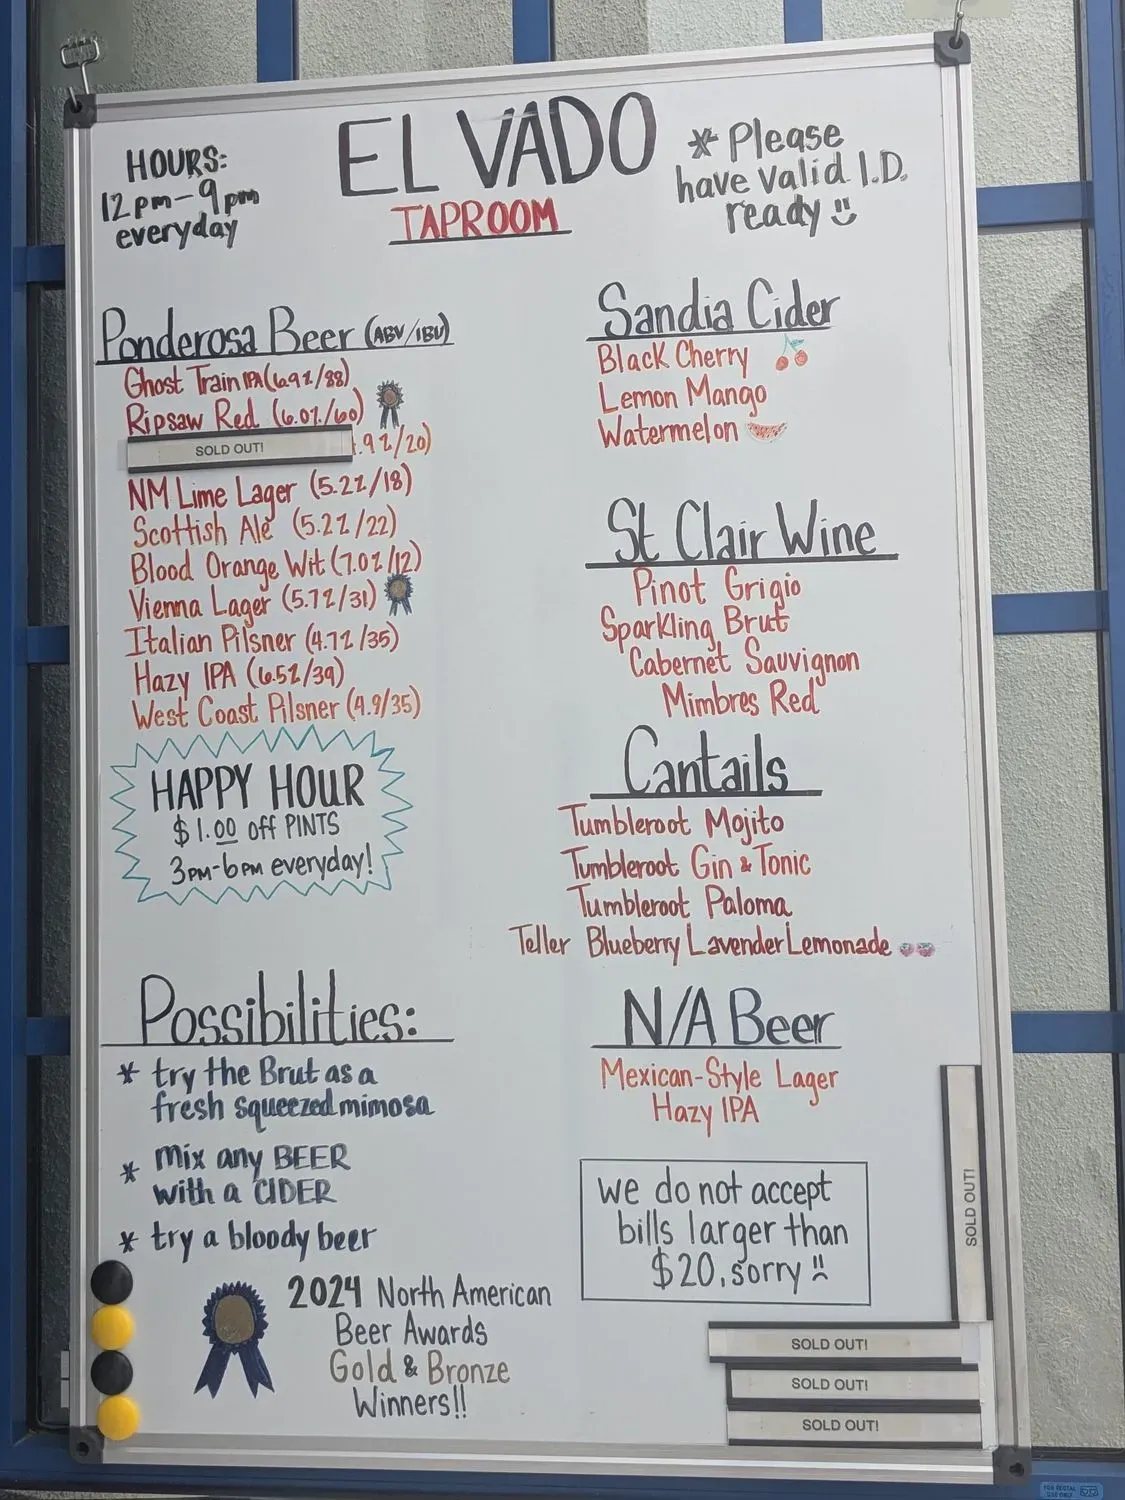 EL VADO
TAPROOM
HOURS:
12pm-9pm
everyday
* Please
have valid I.D.
ready
Ponderosa Beer (ABV/IBU)
Ghost Train IPA (6.9%/88)
Ripsaw Red (6.0%/60)
SOLD OUT! .9%/20)
NM Lime Lager (5.2%/18)
Scottish Ale (5.2%/22)
Blood Orange Wit (7.0%/12)
Vienna Lager (5.7%/31)
Italian Pilsner (4.7%/35)
Hazy IPA (6.5%/39)
West Coast Pilsner (4.9/35)
HAPPY HOUR
$1.00 off PINTS
3PM-6PM everyday!
Possibilities:
* try the Brut as a
fresh squeezed mimosa
* mix any BEER
with a CIDER
* try a bloody beer
2024 North American
Beer Awards
Gold & Bronze
Winners!!
Sandia Cider
Black Cherry
Lemon Mango
Watermelon
St Clair Wine
Pinot Grigio
Sparkling Brut
Cabernet Sauvignon
Mimbres Red
Cantails
Tumbleroot Mojito
Tumbleroot Gin & Tonic
Tumbleroot Paloma
Teller Blueberry Lavender Lemonade
N/A Beer
Mexican-Style Lager
Hazy IPA
we do not accept
bills larger than
$20, sorry
SOLD OUT!
SOLD OUT!
SOLD OUT!
SOLD OUT!